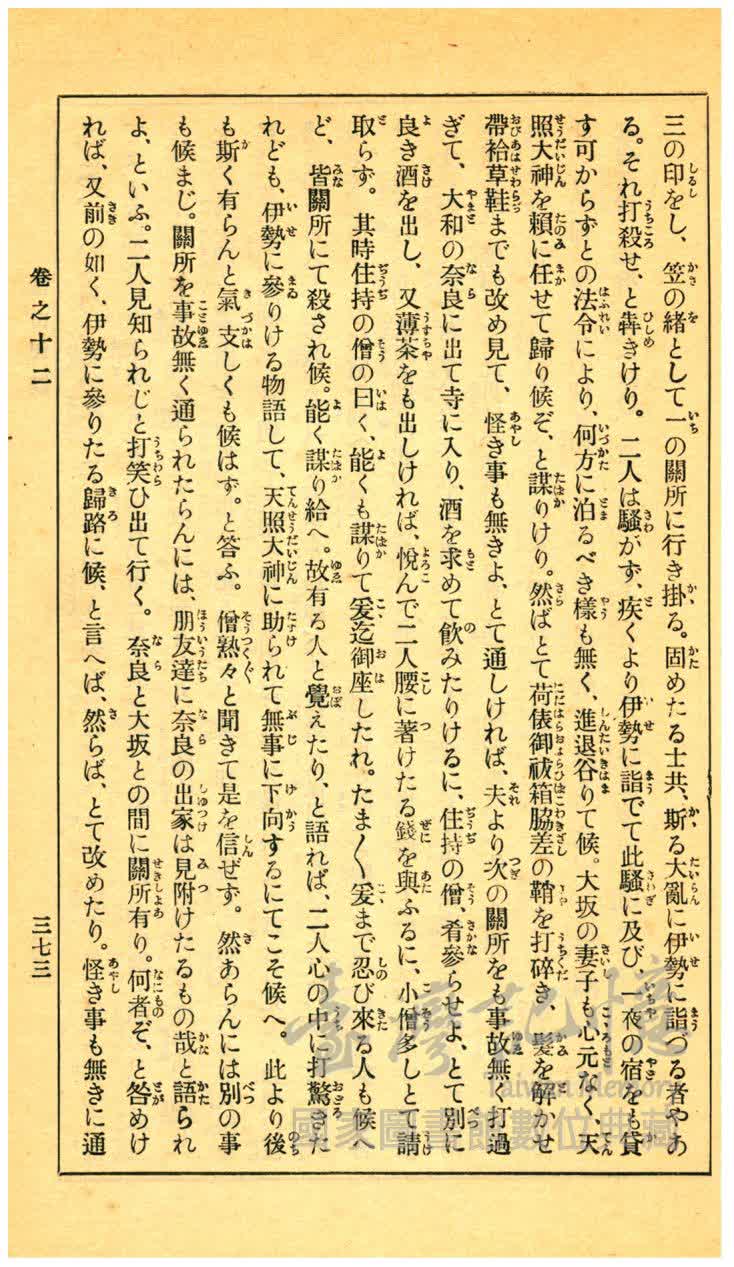 三の印をし、笠の緒として一の關所に行き掛る。固めたる士共、斯る大亂に伊勢に詣づる者やあ
る。それ打殺せ、と犇きけり。二人は騷がず、疾くより伊勢に詣でて此騷に及び、一夜の宿をも貸
す可からずとの法令により、何方に泊るべき樣も無く、進退谷りて候。大坂の妻子も心元なく、天
照大神を賴に任せて歸り候ぞ、と謀りけり。然ばとて荷俵御祓箱脇差の鞘を打碎き、髮を解かせ
帶袷草鞋までも改め見て、怪き事も無きよ、とて通しければ、夫より次の關所をも事故無く打過
ぎて、大和の奈良に出て寺に入り、酒を求めて飮みたりけるに、住持の僧、肴參らせよ、とて別に
良き酒を出し、又薄茶をも出しければ、悅んで二人腰に著けたる錢を與ふるに、小僧多しとて請
取らず。其時住持の僧の曰く、能くも謀りて爰迄御座したれ。たま〱爰まで忍び來る人も候へ
ど、皆關所にて殺され候。能く謀り給へ。故有る人と覺えたり、と語れば、二人心の中に打驚きた
れども、伊勢に參りける物語して、天照大神に助られて無事に下向するにてこそ候へ。此より後
も斯く有らんと氣支しくも候はず。と答ふ。僧熟々と聞きて是を信ぜず。然あらんには別の事
も候まじ。關所を事故無く通られたらんには、朋友達に奈良の出家は見附けたるもの哉と語られ
よ、といふ。二人見知られじと打笑ひ出て行く。奈良と大坂との間に關所有り。何者ぞ、と咎めけ
れば、又前の如く、伊勢に參りたる歸路に候、と言へば、然らば、とて改めたり。怪き事も無きに通
卷之十二
三七三
臺灣記憶
Taiwan Memory
國家圖書館數位典藏